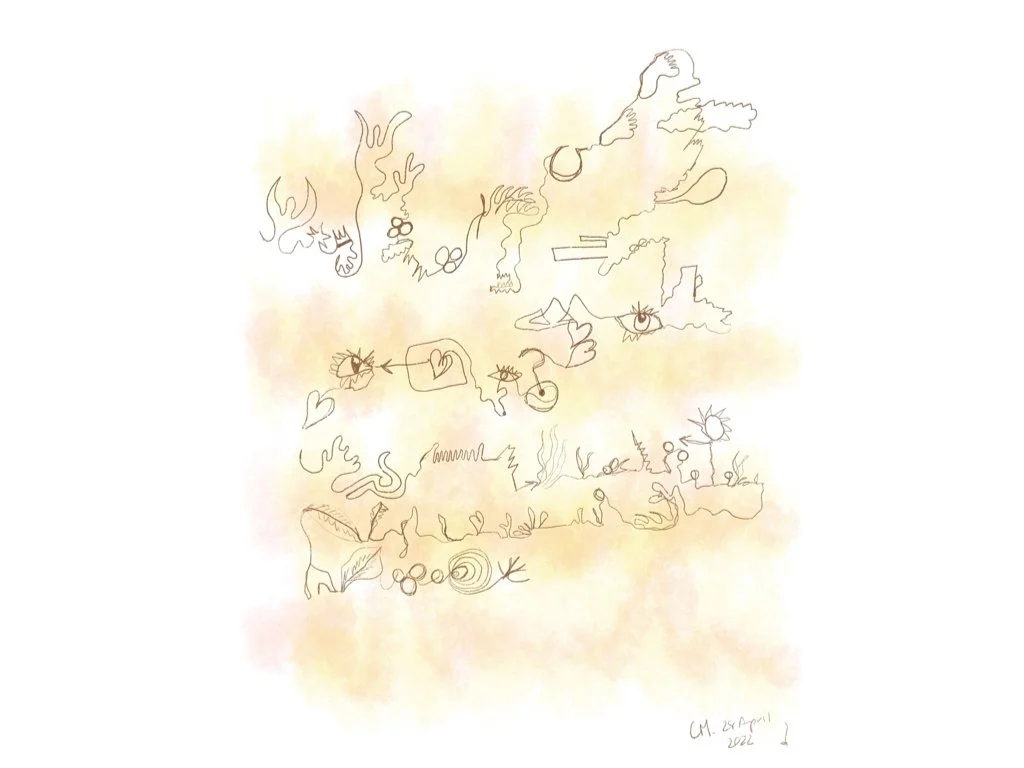 CM. 28 April
2022